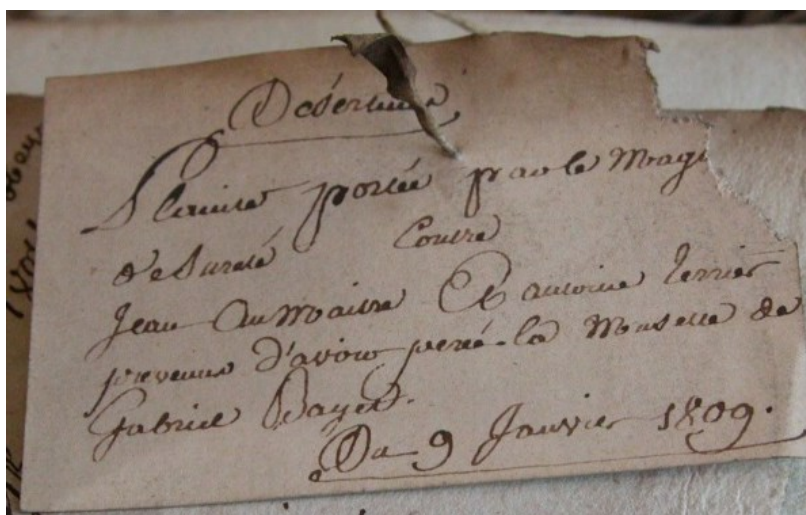 Désertines
Plainte portée par le Magi
de Sureté Contre
Jean Aumaitre Et antoine Terrier
prevenus d'avoir percé la Musette de
Gabriel Bayet.
Du 9 Janvier 1809.